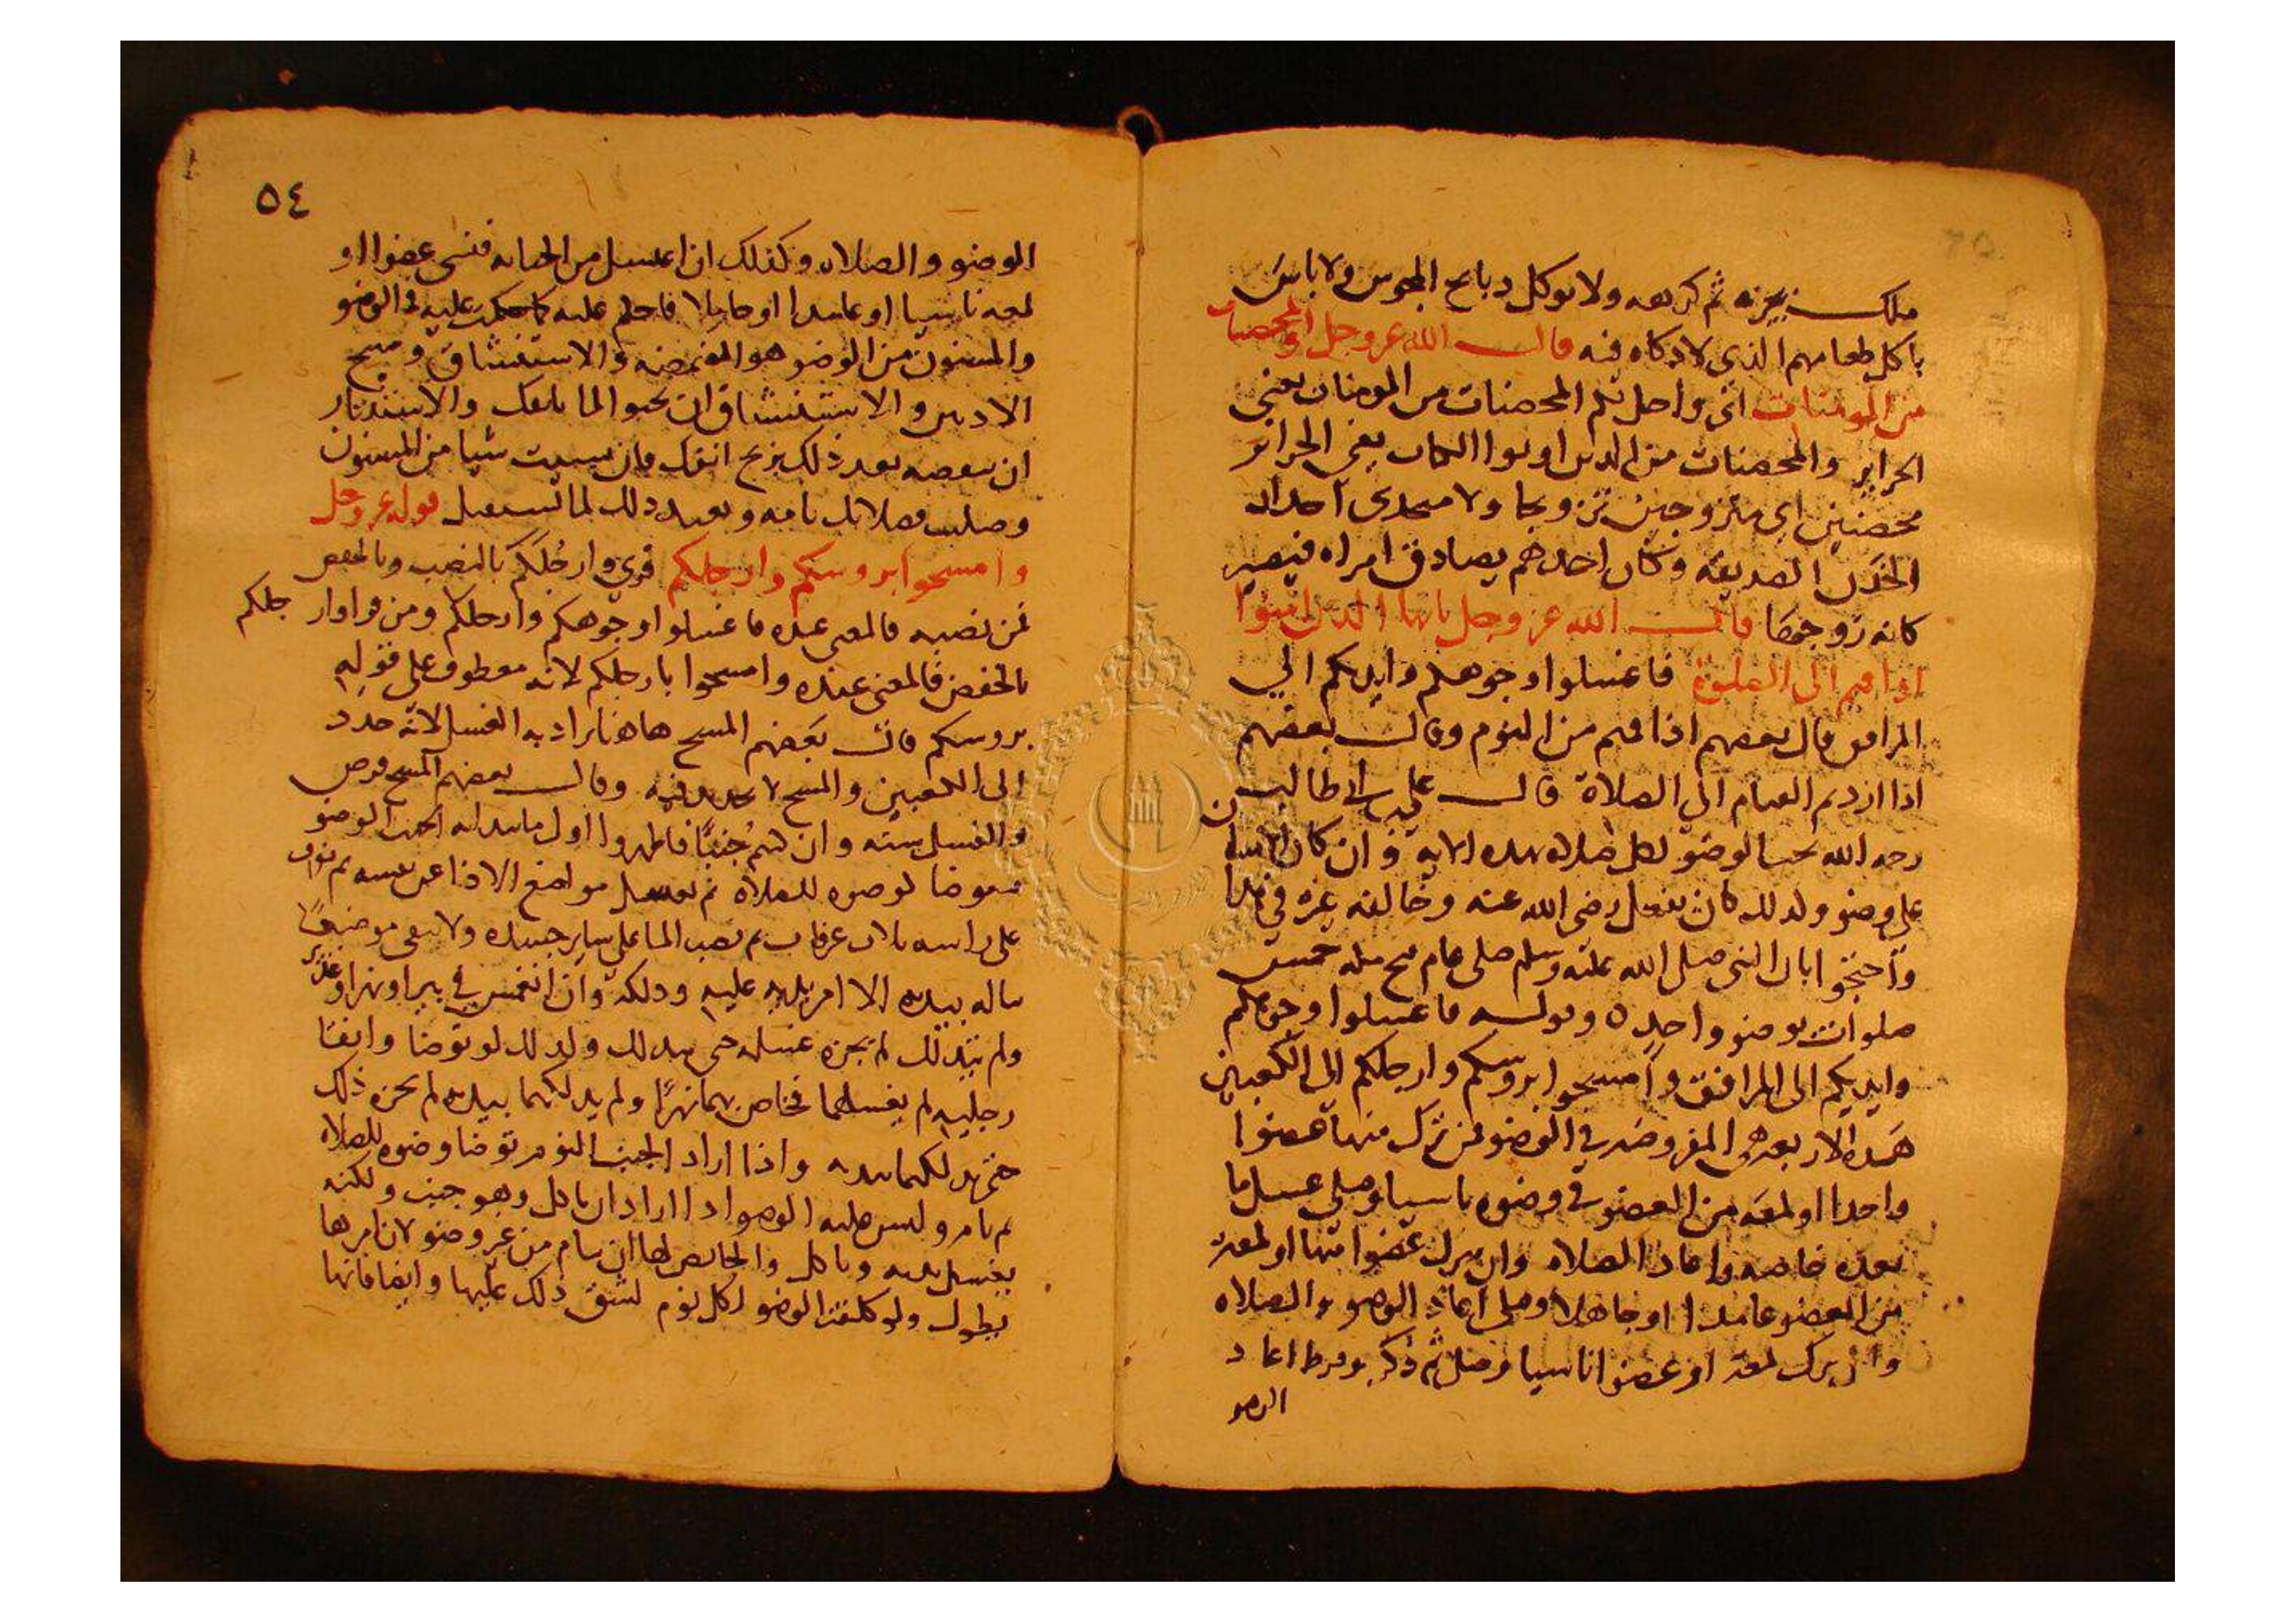 ملك يجيزه ثم كرهه ولا توكل دبايح المجوس ولا باس
باكل طعامهم الذي لا دكاه فيه قال الله عز وجل والمحصنات
من المومنات اي واحل لكم المحصنات من المومنات يعني
الحراير والمحصنات من الدين اوتوا الكتاب يعني الحراير
محصنين اي متزوجين تزويجا ولا متخدي اخدان
الخدن الصديقه وكان احدهم يصادق امراه فيصير
كانه زوجها قال الله عز وجل يايها الدين امنوا
ادا قمتم الى الصلوة فاغسلوا وجوهكم وايديكم الي
المرافق قال بعضهم اذا قمتم من النوم وقال بعضهم
اذا اردتم القيام الى الصلاة قال علي بن ابي طالب
رحمه الله يجب الوضو لكل صلاه بهده الايه وان كان الانسان
على وضو ولدلك كان يفعل رضي الله عنه وخالفه غيره في هدا
واحتجوا بان النبي صلى الله عليه وسلم صلى عام فتح مكه خمس
صلوات بوضو واحد ه وقوله فاغسلوا وجوهكم
وايديكم الى المرافق وامسحوا بروسكم وارجلكم الى الكعبين
هده الاربعه هي المفروضه في الوضو فمن ترك منها عضوا
واحدا او لمعه من العضو في وضوه ناسيا وصلى غسل ما
بعده خاصه واعاد الصلاه وان ترك عضوا منها او لمعه
من العضو عامدا او جاهلا وصلى اعاد الوضو والصلاه
وان ترك لمعه او عضوا ناسيا وصلى ثم ذكر وفرط اعاد
الوضو
٥٤
الوضو والصلاه وكذلك ان اغتسل من الجنابه فنسى عضوا او
لمعه ناسيا او عامدا او جاهلا فاحكم عليه كما حكمت عليه في الوضو
والمسنون من الوضو هو المضمضه والاستنشاق ومسح
الادنين والاستنشاق ان تحبو الما بانفك والاستنثار
ان تنفضه بعد ذلك بريح انفك فان نسيت شيا من المسنون
وصليت فصلاتك تامه وتعيد دلك لما تستقبل قوله عز وجل
وامسحوا بروسكم وارجلكم قري وارجلكم بالنصب وبالخفض
فمن نصبه فالمعنى عنده فاغسلوا وجوهكم وارجلكم ومن قرا وارجلكم
بالخفض فالمعنى عنده وامسحوا بارجلكم لانه معطوف على قوله
بروسكم قال بعضهم المسح هاهنا يراد به الغسل لانه حدد
الى الكعبين والمسح لا تحديد فيه وقال بعضهم المسح فرض
والغسل سنه وان كنتم جنبا فاطهروا اول ما يبدا به الجنب الوضو
فيتوضا كوضوه للصلاة ثم يغسل مواضع الاذا عن نفسه ثم يغرف
على راسه ثلاث غرفات ثم يصب الما على ساير جسده ولا يبقى موضعا
يناله بيده الا امر يديه عليه ودلكه وان انغمس في بير او نهر او غدير
ولم يتدلك لم يجزه غسله حتى يتدلك ولدلك لو توضا وابقا
رجليه لم يغسلهما فخاض بهما نهرا ولم يدلكهما بيده لم يجزه ذلك
حتى يدلكهما بيده واذا اراد الجنب النوم توضا وضوه للصلاه
ثم نام وليس عليه الوضو ادا اراد ان ياكل وهو جنب ولكنه
يغسل يديه وياكل والحايض لها ان تنام من غير وضو لان امرها
يطول ولو كلفت الوضو لكل نوم لشق ذلك عليها وايضا فانها